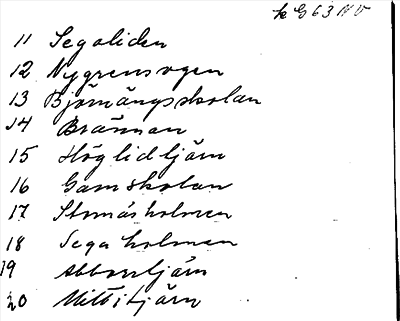 k G 63 NV
11 Segoliden
12 Nygrensvgen
13 Björnängsskolan
14 Brännan
15 Höglidtjärn
16 Gamskolan
17 Stornäsholmen
18 Segaholmen
19 Abborrtjärn
20 Mittitjärn